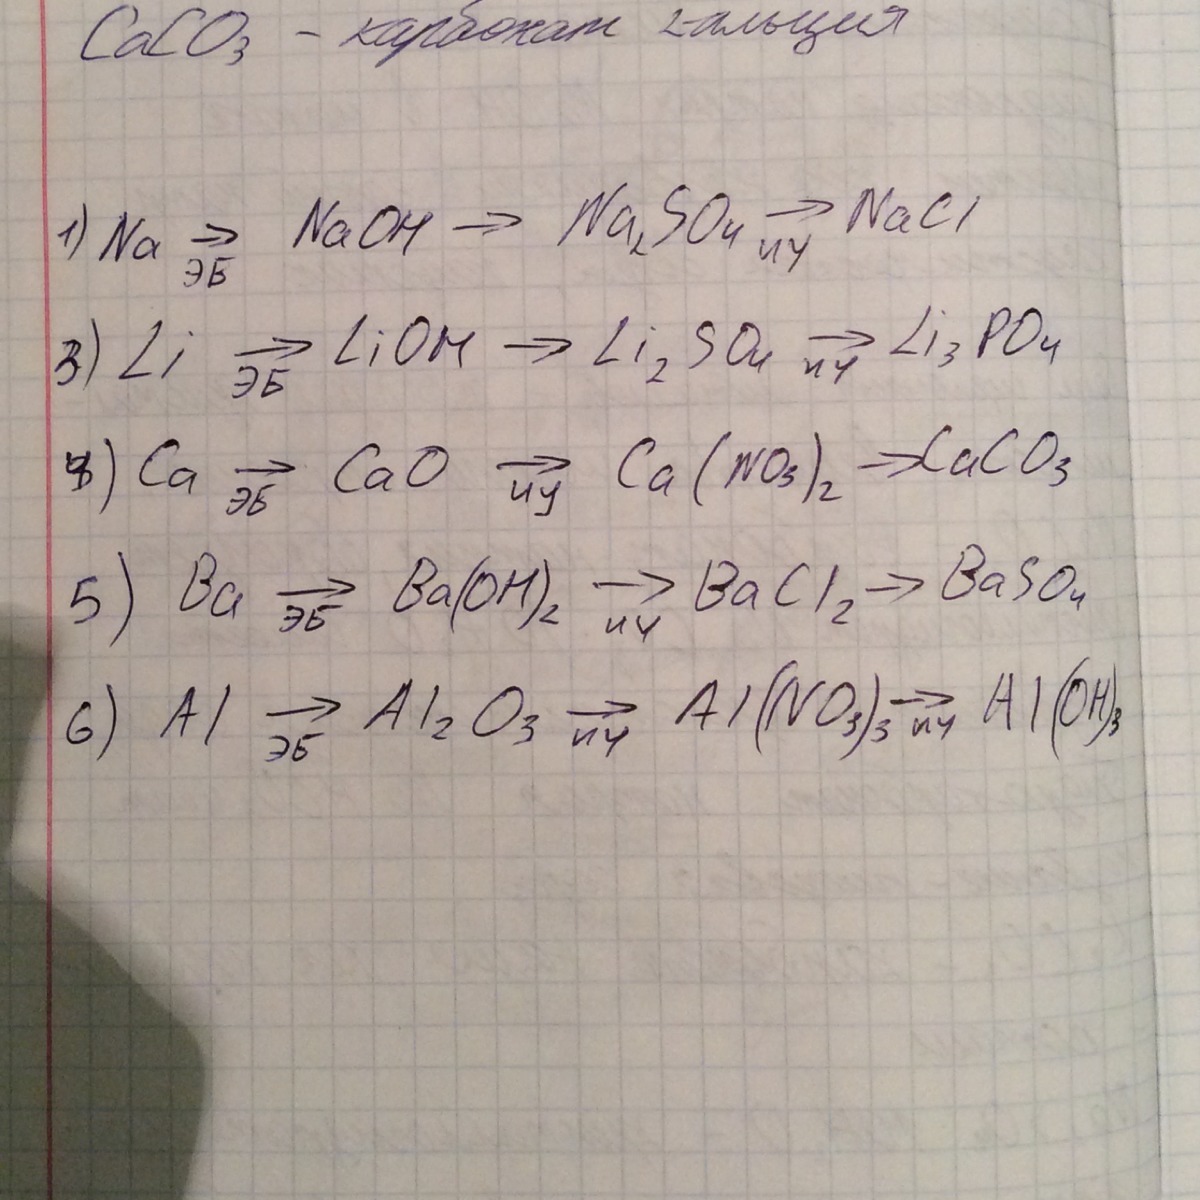 CaCO3 - карбонат кальция
1) Na → ЭБ NaOH → Na2SO4 → ИУ NaCl
3) Li → ЭБ LiOH → Li2SO4 → ИУ Li3PO4
4) Ca → ЭБ CaO → ИУ Ca(NO3)2 → CaCO3
5) Ba → ЭБ Ba(OH)2 → ИУ BaCl2 → BaSO4
6) Al → ЭБ Al2O3 → ИУ Al(NO3)3 → ИУ Al(OH)3